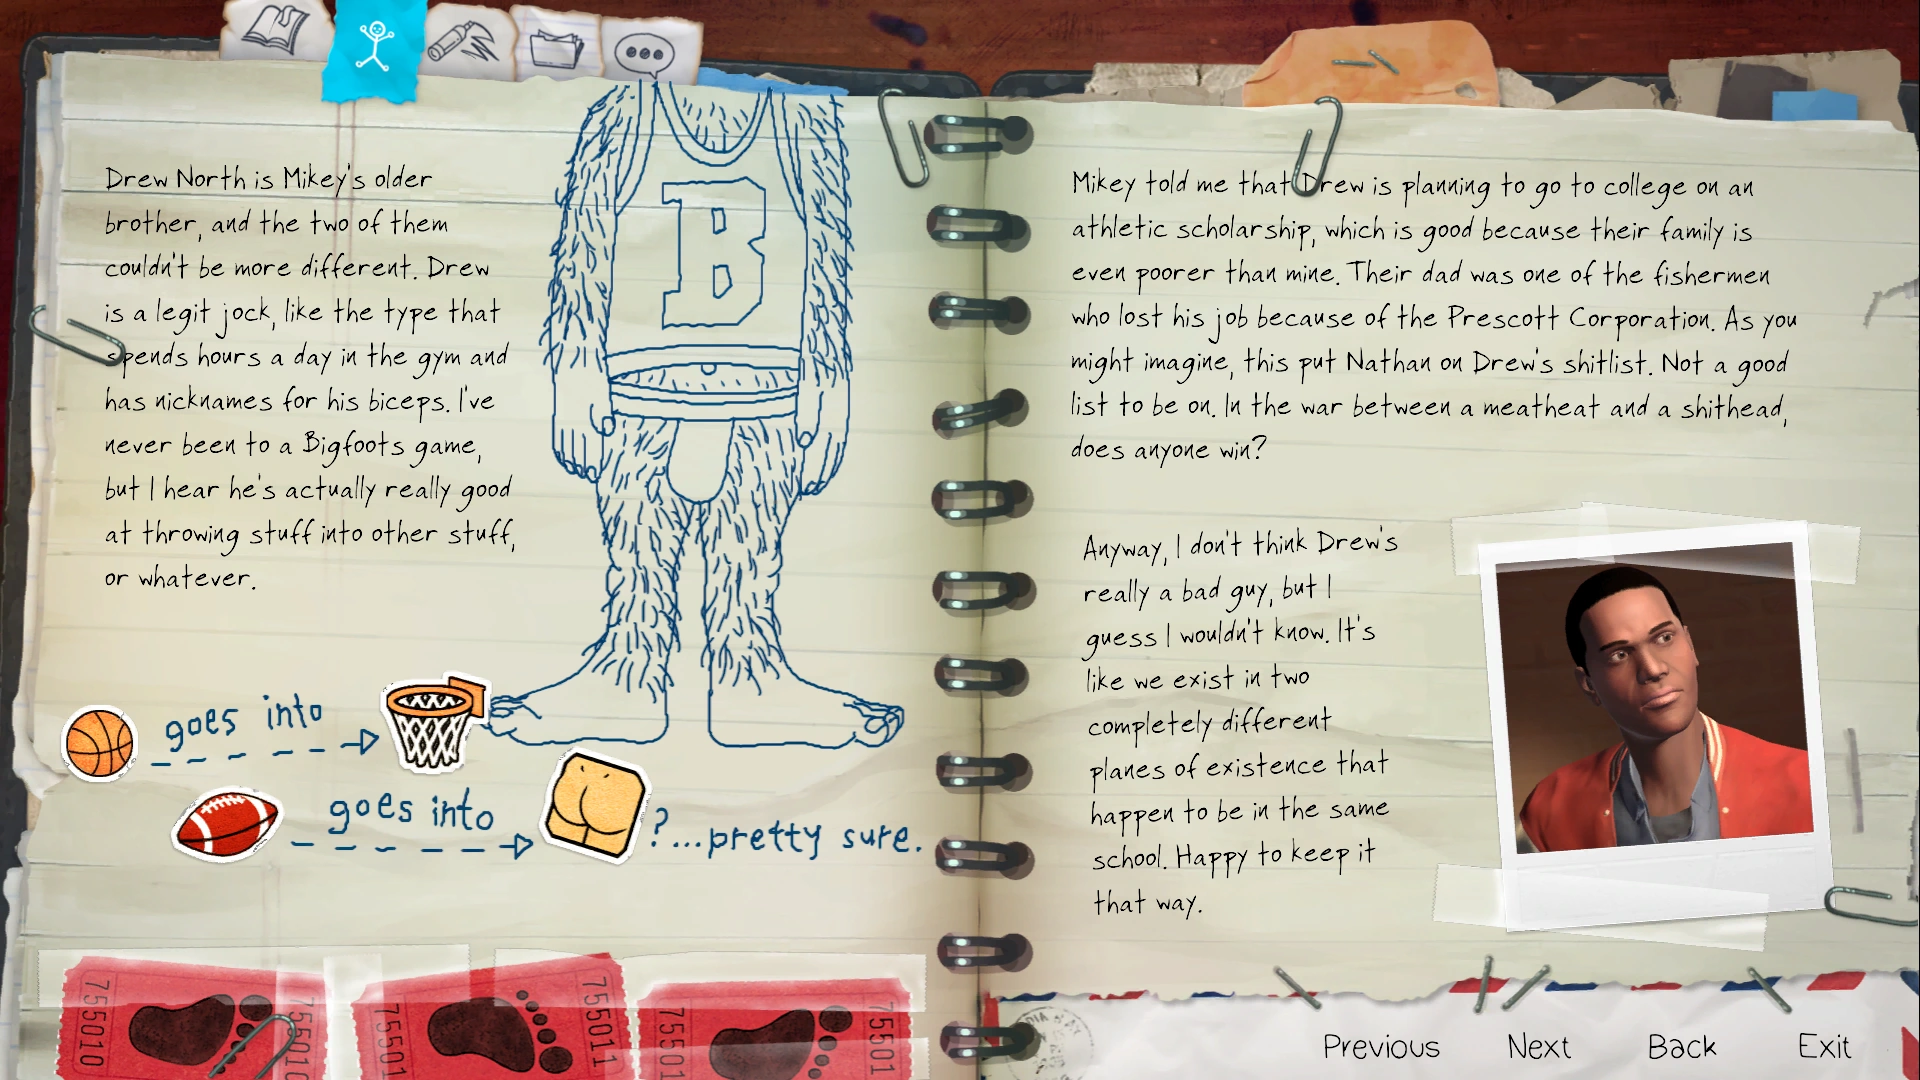 Drew North is Mikey's older
brother, and the two of them
couldn't be more different. Drew
is a legit jock, like the type that
spends hours a day in the gym and
has nicknames for his biceps. I've
never been to a Bigfoots game,
but I hear he's actually really good
at throwing stuff into other stuff,
or whatever.
B
goes into
goes into
?...pretty sure.
755010
755010
75501
755011
75501
75501
Mikey told me that Drew is planning to go to college on an
athletic scholarship, which is good because their family is
even poorer than mine. Their dad was one of the fishermen
who lost his job because of the Prescott Corporation. As you
might imagine, this put Nathan on Drew's shitlist. Not a good
list to be on. In the war between a meatheat and a shithead,
does anyone win?
Anyway, I don't think Drew's
really a bad guy, but I
guess I wouldn't know. It's
like we exist in two
completely different
planes of existence that
happen to be in the same
school. Happy to keep it
that way.
Previous Next Back Exit